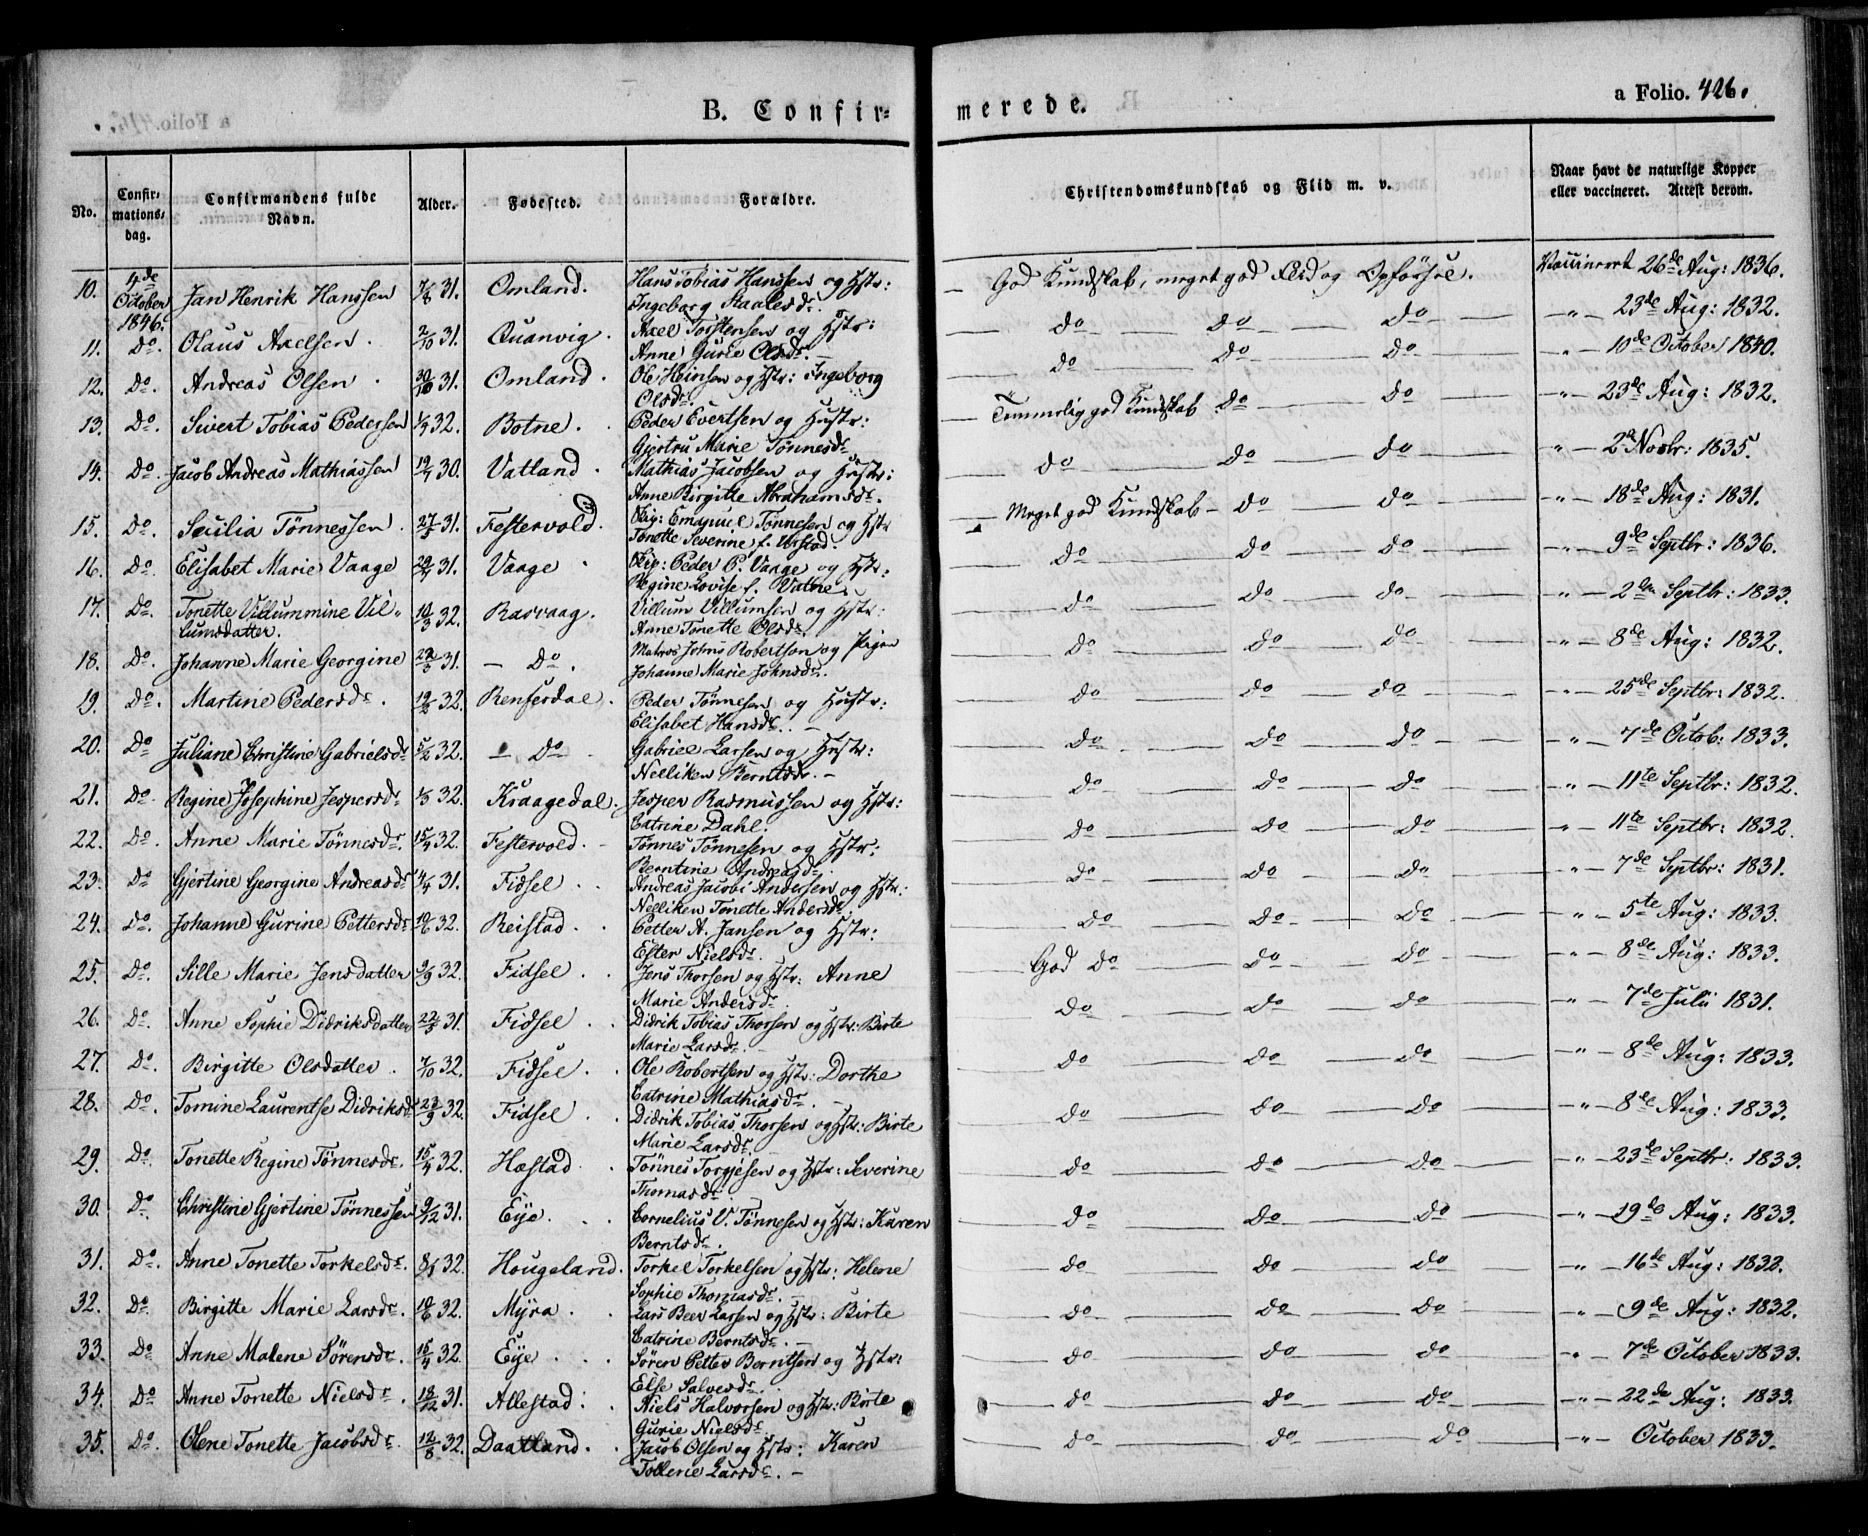 B. Confir-
merede.
a Folio. 426.
No.
Confir-
mations-
dag.
Confirmandens fulde
Navn.
Alder.
Fødested.
Forældre.
Christendomskundskab og Flid m. v.
Naar havt de naturlige Kopper
eller vaccineret. Attest derom.
10. 4de October 1846. Jan Henrik Hanssen 7/8 31. Omland. Hans Tobias Hanssen og Hstr:
Ingeborg Staalesdr. — God Kundskab, meget god Flid og Opførsel. Vaccineret 26de Aug: 1836.
11. Do. Olaus Axelsen. 2/10 31. Quanvig. Axel Torstensen og Hstr:
Anne Gurie Olsdr. — do — do — do — " — 23de Aug: 1832.
12. Do. Andreas Olsen. 30/10 31. Omland. Ole Heinsen og Hstr: Ingeborg
Olsdr. — do — do — do — " — 10de October 1840.
13. Do. Sivert Tobias Pedersen 32. Botne. Peder Evertsen og Hustr:
Gjertru Marie Tønnesdr — Temmelig god Kundskab do — do — " — 23de Aug: 1832.
14. Do. Jacob Andreas Mathiassen 30. Vatland. Mathias Jacobsen og Hustr:
Anne Birgitte Abrahamsdr. — do — do — do " — 2de Novbr: 1835.
15. Do. Sicilia Tønnessen. 31. Festervold. Skip: Emanuel Tønnesen og Hstr
Tonette Severine f. Urstad. — Meget god Kundskab — do — do — " — 18de Aug: 1831.
16. Do. Elisabet Marie Vaage 31. Vaage Skip: Peder P. Vaage og Hstr:
Regine Lovise f. Vatne. do — do — do — " — 9de Septbr: 1836.
17. Do. Tonette Villummine Vil-
lumsdatter. 32. Rasvaag. Villum Villumsen og Hstr:
Anne Tonette Olsdr. do — do — do — " — 2den Septbr: 1833.
18. Do. Johanne Marie Georgine 31. — Do. Matros Johns Robertson og Pigen
Johanne Marie Johnsdr. do — do — do — " — 8de Aug: 1832.
19. Do. Martine Pedersdr. 19/2 32. Renferdal. Peder Tønnesen og Hustr:
Elisabet Hansdr. — do — do — do — " — 25de Septbr: 1832.
20. Do Juliane Christine Gabrielsdr 32. — Do — Gabriel Larsen og Hustr:
Nelliken Berntsdr. — do — do — do — " — 7de Octob: 1833.
21. Do. Regine Josephine Jespersdr 32. Kraagedal. Jesper Rasmussen og Hstr:
Catrine Dahl. do — do — do — " — 11te Septbr: 1832.
22. Do. Anne Marie Tønnesdr. 15/4 32. Festervold. Tønnes Tønnesen og Hstr:
Berntine Andreasdr. do — do — do — " — 11te Septbr: 1832.
23. Do Gjertine Georgine Andreasdr 31. Fidsel. Andreas Jacobi Andersen og Hstr:
Nelliken Tonette Andersdr do — do — do — " — 7de Septbr: 1831.
24. Do. Johanne Gurine Pettersdr 32. Reistad. Petter A. Jansen og Hstr:
Ester Nielsdr. do — do — do — " — 5te Aug: 1833.
25. Do. Sille Marie Jensdatter 32. Fidsel. Jens Thorsen og Hstr: Anne
Marie Andersdr. God do — do — do — " — 8de Aug: 1833.
26. Do. Anne Sophie Didriksdatter 31. Fidsel. Didrik Tobias Thorsen og Hstr: Birte
Marie Larsdr. — do — do — do — " — 7de Juli 1831.
27. Do. Birgitte Olsdatter. 7/10 32. Fidsel. Ole Robertsen og Hstr: Dorthe
Catrine Mathiasdr. — do — do — do — " — 8de Aug: 1833.
28. Do. Tomine Laurentse Didriksdr 23/9 32. Fidsel. Didrik Tobias Thorsen og Hstr: Birte
Marie Larsdr. do — do — do — " — 8de Aug: 1833.
29. Do. Tonette Regine Tønnesdr. 15/4 32. Hæstad. Tønnes Torgjesen og Hstr: Severine
Thomasdr. do — do — do — " — 23de Septbr: 1833.
30. Do. Christine Gjertine Tønnessen 9/12 31. Eye. Cornelius V. Tønnesen og Hstr: Karen
Berntsdr. do — do — do — " — 19de Aug: 1833.
31. Do. Anne Tonette Torkelsdr. 32. Hougeland. Torkel Torkelsen og Hstr: Helene
Sophie Thomasdr. — do — do — do — " — 16de Aug: 1832.
32. Do Birgitte Marie Larsdr. 32. Myra. Lars Beer Larsen og Hstr: Birte
Catrine Berntsdr. — do — do — do — " — 9de Aug: 1832.
33. Do. Anne Malene Sørensdr. 15/4 32. Eye. Søren Petter Berntsen og Hstr:
Else Salvesdr. do — do — do — " — 7de October 1833.
34. Do Anne Tonette Nielsdr. 31. Allestad. Niels Halvorsen og Hstr: Birte
Gurie Nielsdr. do — do — do — " — 22de Aug: 1833.
35. Do. Olene Tonette Jacobsdr. 32. Daatland. Jacob Olsen og Hstr: Karen
Tollerie Larsdr. — do — do — do — " — October 1833.